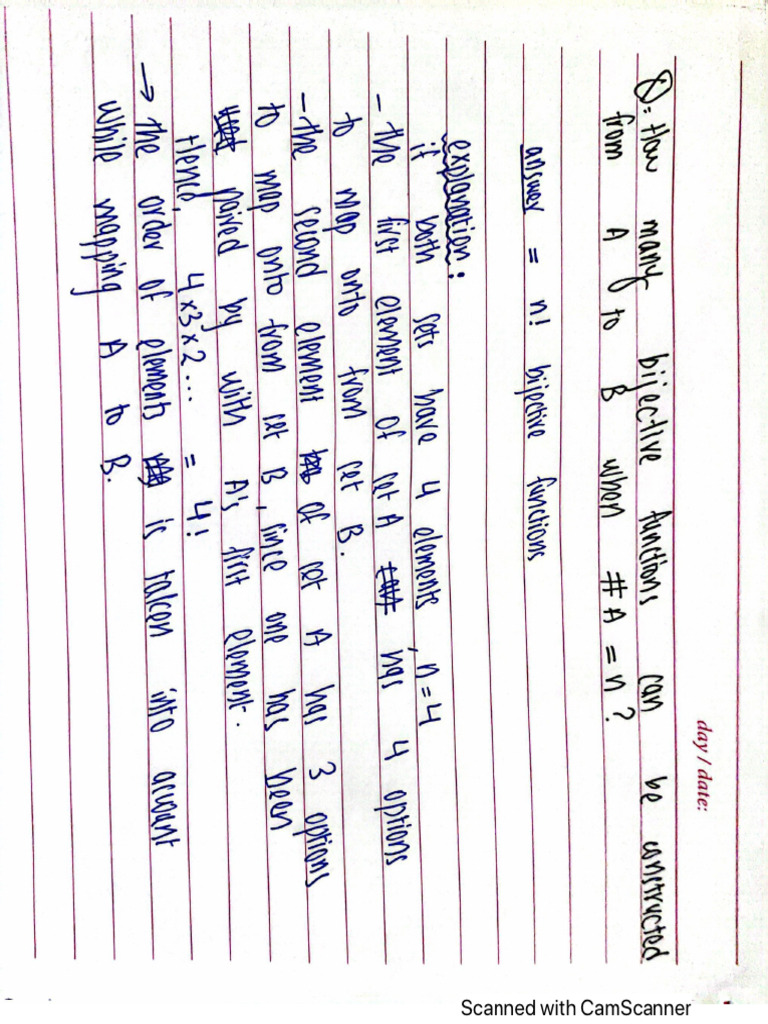 day / date:
Q: How many bijective functions can be constructed
from A to B when #A = n?
answer = n! bijective functions
explanation:
if both sets have 4 elements, n=4
- the first element of set A has 4 options
to map onto from set B.
- the second element of set A has 3 options
to map onto from set B, since one has been
paired by with A's first element.
Hence, 4×3×2... = 4!
→ the order of elements is taken into account
while mapping A to B.
Scanned with CamScanner